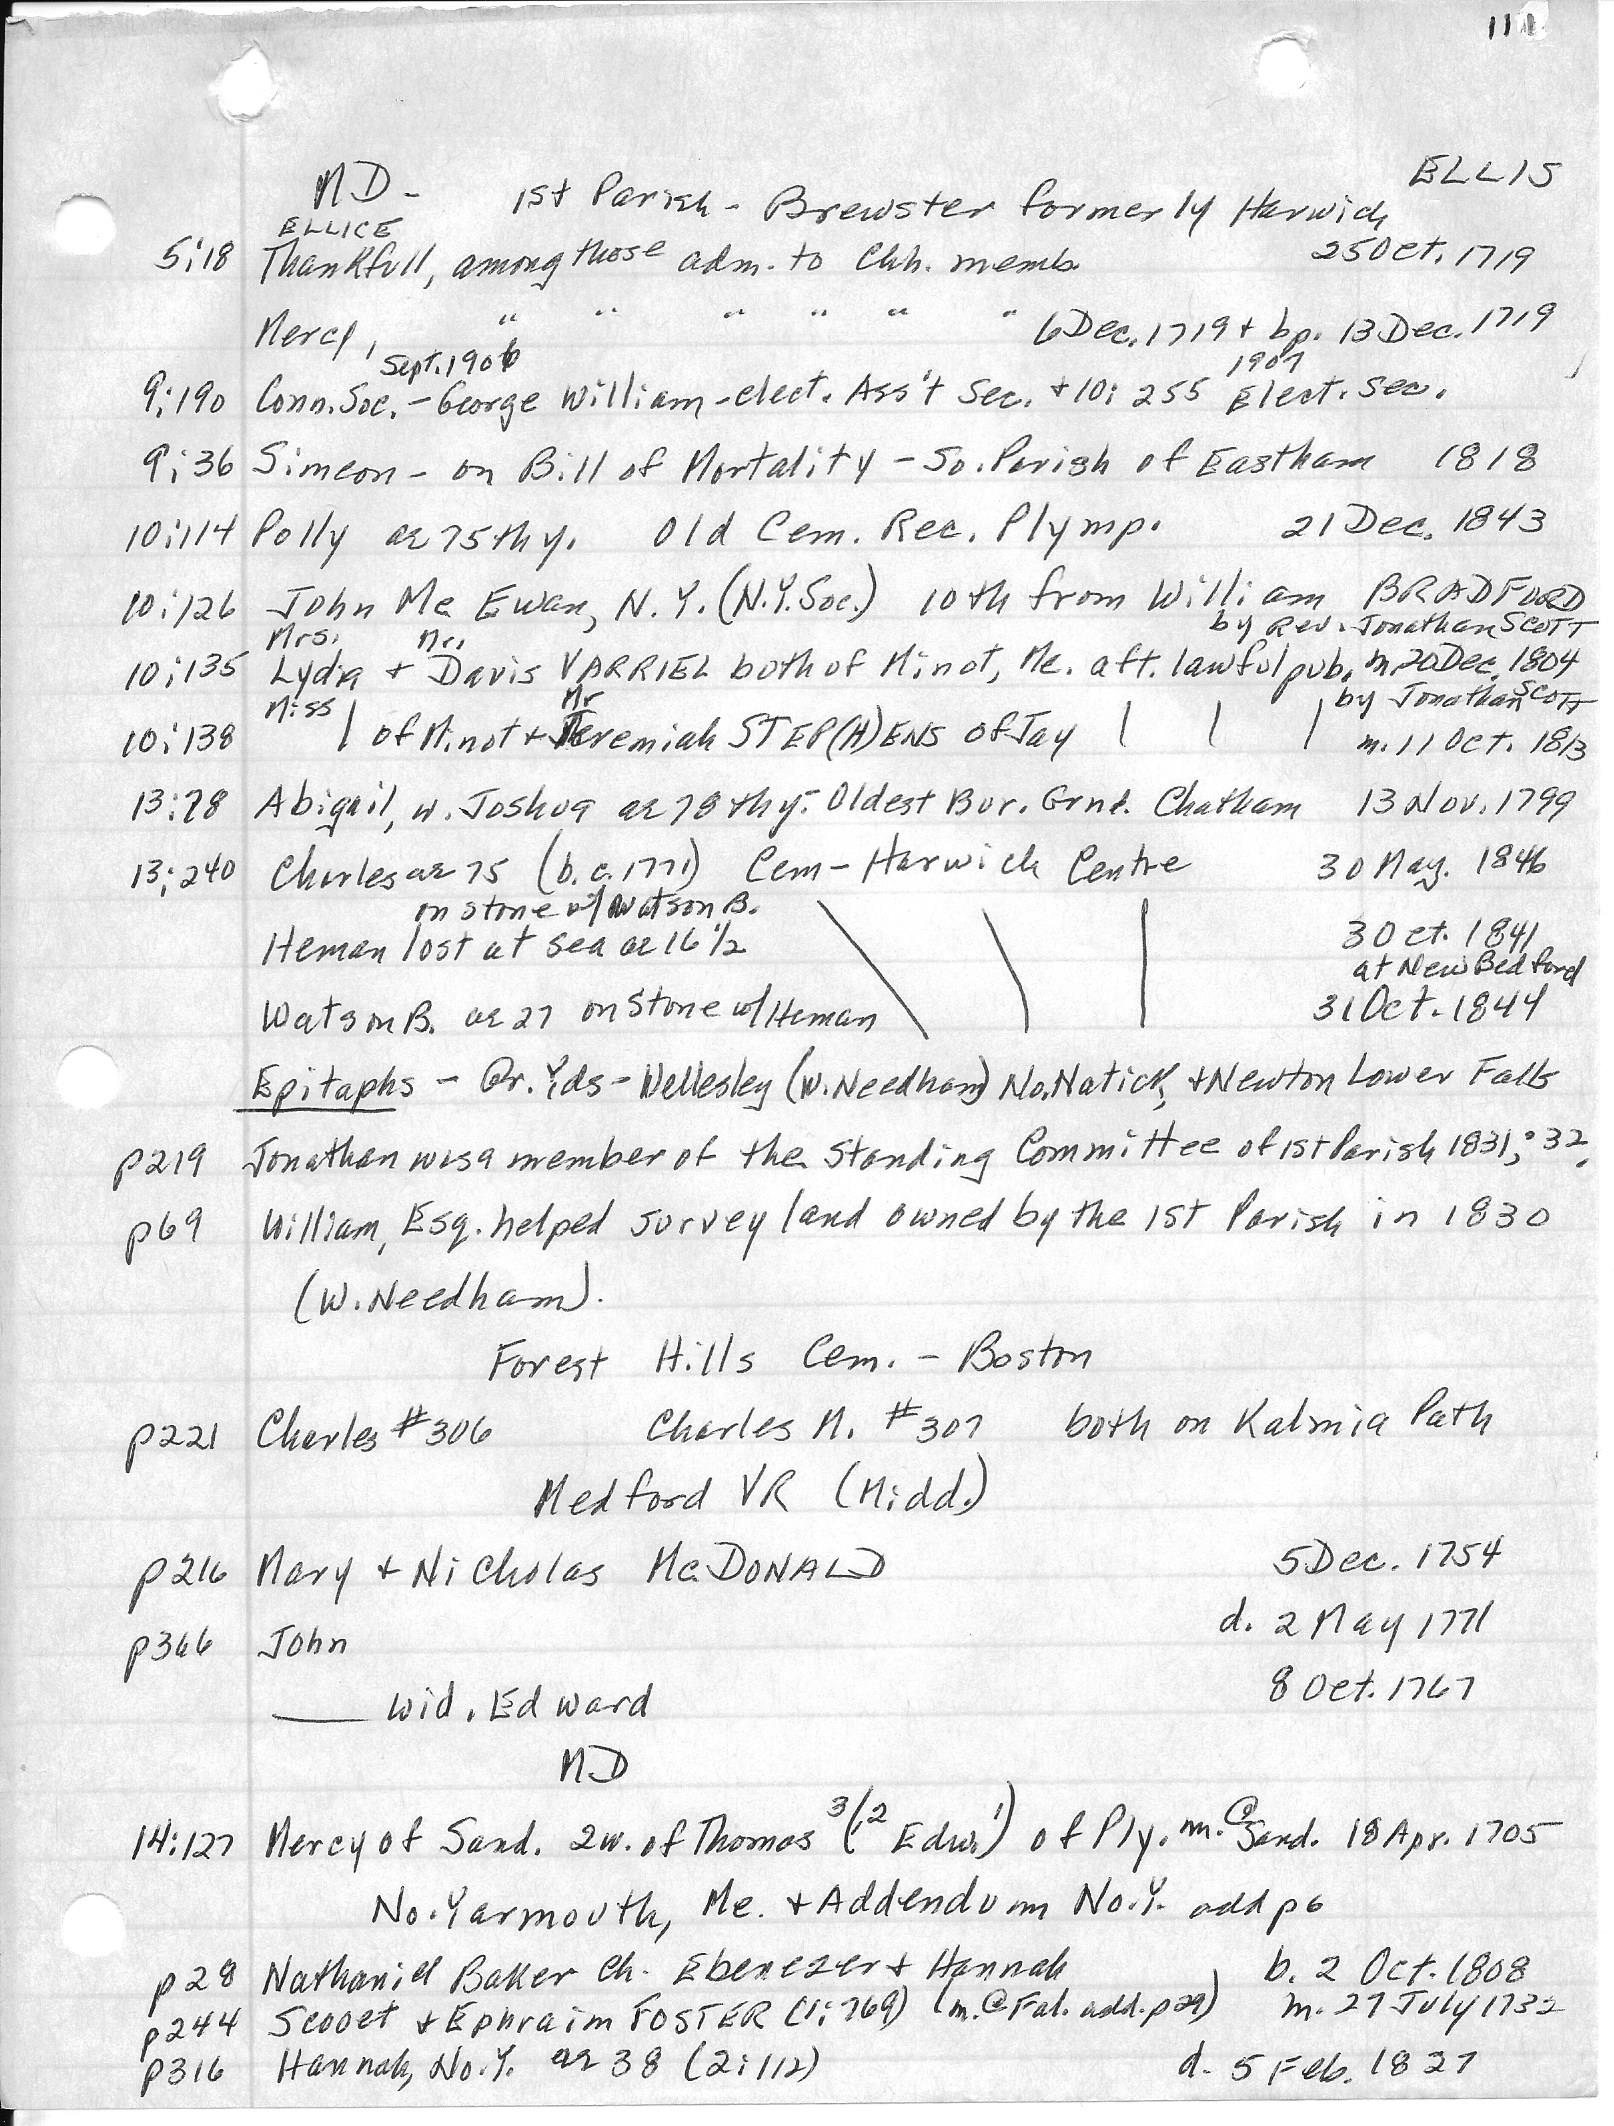 111
ELLIS
MD - 1st Parish - Brewster formerly Harwich
ELLICE
5:18 Thankfull, among those adm. to Chh. memb. 25 Oct. 1719
Mercy, " " " " " " 6 Dec. 1719 + bp. 13 Dec. 1719
Sept. 1906 1907
9:190 Conn. Soc. - George William - elect. Ass't Sec. + 10:255 Elect. Sec.
9:36 Simeon - on Bill of Mortality - So. Parish of Eastham 1818
10:114 Polly ae 75th y. Old Cem. Rec. Plymp. 21 Dec. 1843
10:126 John Mc Ewan, N.Y. (N.Y. Soc.) 10th from William BRADFORD
Mrs. Mr. by Rev. Jonathan SCOTT
10:135 Lydia + Davis VARRIEL both of Minot, Me. aft. lawful pub. m. 20 Dec. 1804
Miss Mr by Jonathan SCOTT
10:138 | of Minot + Jeremiah STEP(H)ENS of Jay | | | m. 11 Oct. 1813
13:78 Abigail, w. Joshua ae 78th y. Oldest Bur. Grnd. Chatham 13 Nov. 1799
13:240 Charles ae 75 (b. c. 1771) Cem - Harwich Centre 30 May. 1846
on stone w/ Watson B.
Heman lost at sea ae 16 1/2 3 Oct. 1841
at New Bedford
Watson B. ae 27 on stone w/ Heman 31 Oct. 1844
Epitaphs - Gr. Yds - Wellesley (W. Needham) No. Natick, + Newton Lower Falls
p219 Jonathan was a member of the Standing Committee of 1st Parish 1831, '32.
p69 William, Esq. helped survey land owned by the 1st Parish in 1830
(W. Needham).
Forest Hills Cem. - Boston
p221 Charles #306 Charles M. #307 both on Kalmia Path
Medford VR (Midd.)
p216 Mary + Nicholas McDONALD 5 Dec. 1754
p366 John d. 2 May 1771
___ wid. Edward 8 Oct. 1767
MD
14:127 Mercy of Sand. 2w. of Thomas 3 (2 Edw. 1) of Ply. m. @ Sand. 18 Apr. 1705
No. Yarmouth, Me. + Addendum No. Y. add p6
p28 Nathaniel Baker ch. Ebenezer + Hannah b. 2 Oct. 1808
p244 Scooet + Ephraim FOSTER (1:769) (m. @ Fal. add. p29) m. 27 July 1732
p316 Hannah, No. Y. ae 38 (2:112) d. 5 Feb. 1827